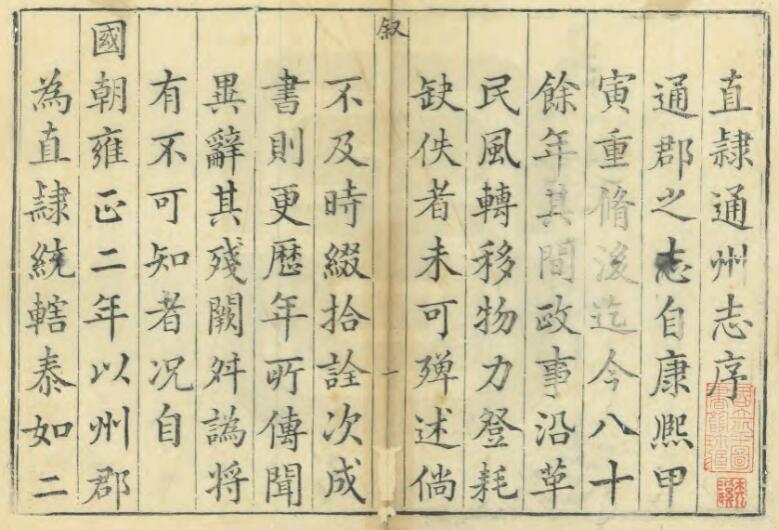 直隸通州志序
通郡之志自康熙甲
寅重脩後迄今八十
餘年其間政事沿革
民風轉移物力登耗
缺佚者未可殫述倘
叙
一
不及時綴拾詮次成
書則更歷年所傳聞
異辭其殘闕舛譌將
有不可知者况自
國朝雍正二年以州郡
為直隸統轄泰如二